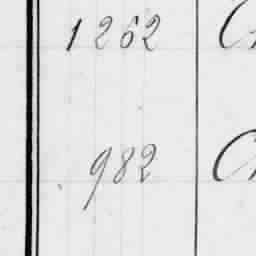 1262
982